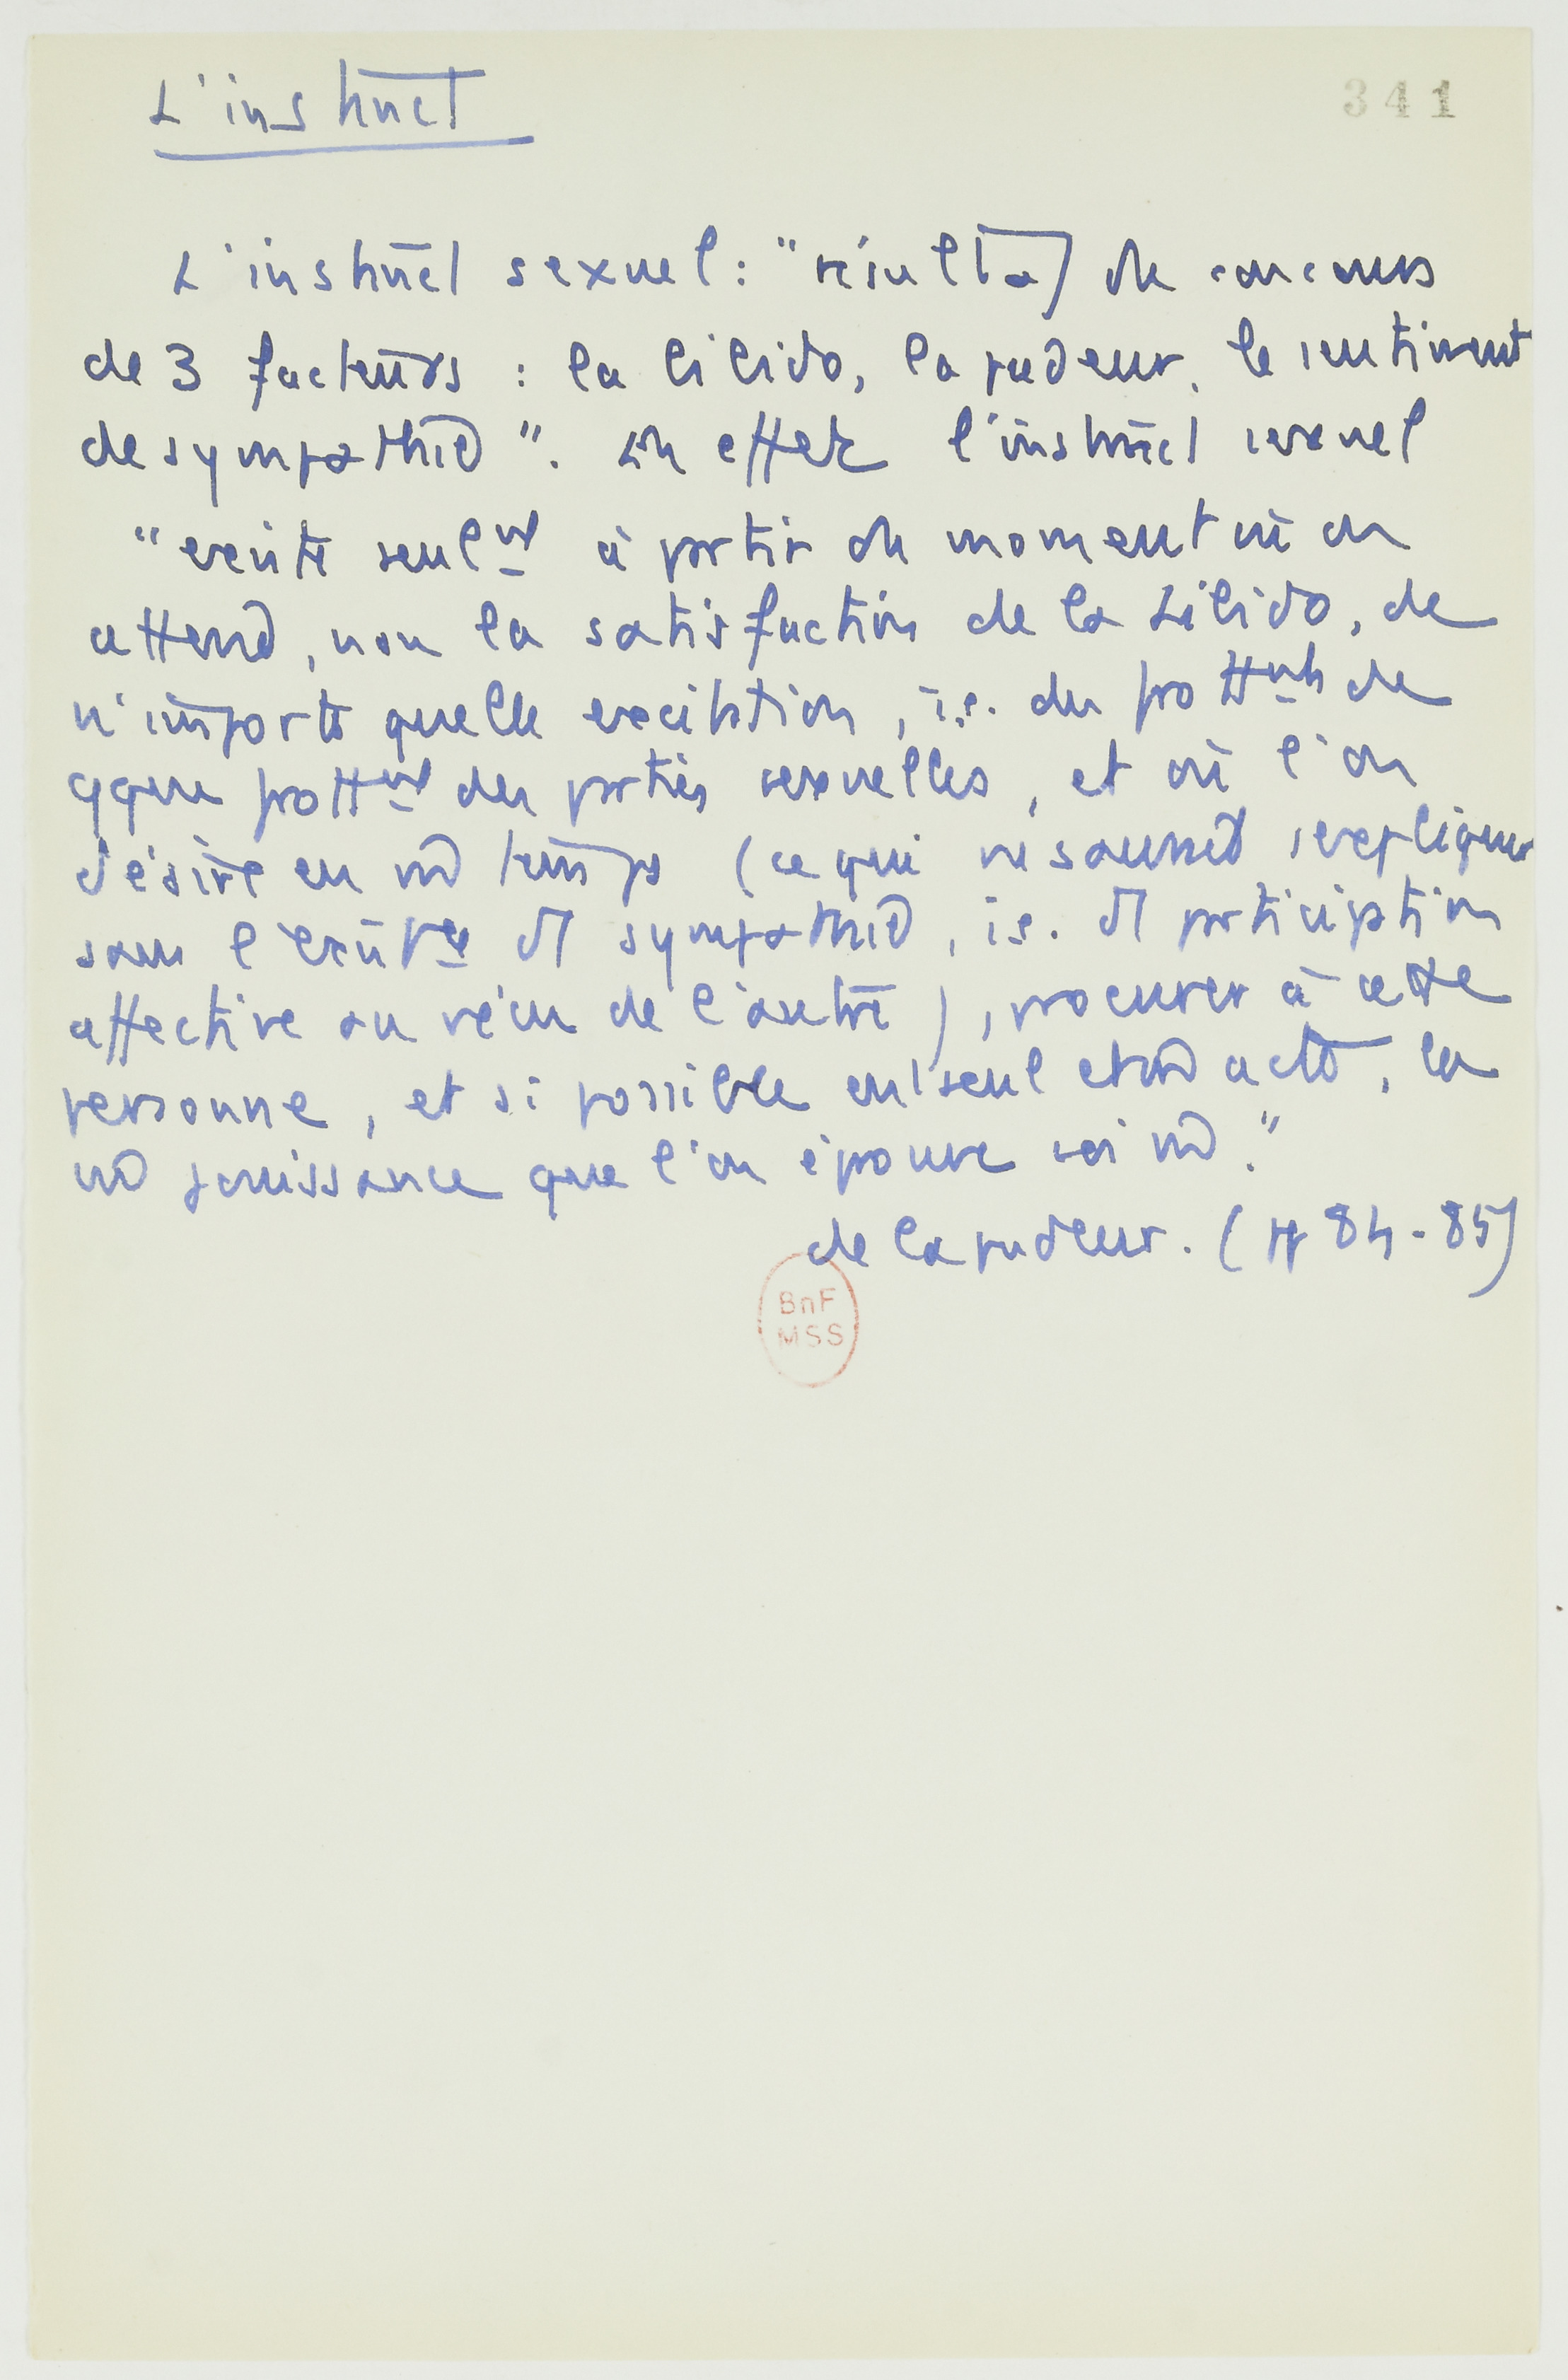 L'instinct
341
L'instinct sexuel : "résultat du concours
de 3 facteurs : la libido, la pudeur, le sentiment
de sympathie". En effet l'instinct sexuel
"existe seulmt à partir du moment où on
attend, non la satisfaction de la libido, de
n'importe quelle excitation, i.e. du frottmt de
qque frottmt des parties sexuelles, et où l'on
désire en m temps (ce qui ne saurait s'expliquer
sans l'existce d'1 sympathie, i.e. d'1 participation
affective au vécu de l'autre), procurer à cette
personne, et si possible en 1 seul et m acte, la
m jouissance que l'on éprouve soi m."
de la pudeur. (pp 84-85)
BnF
MSS